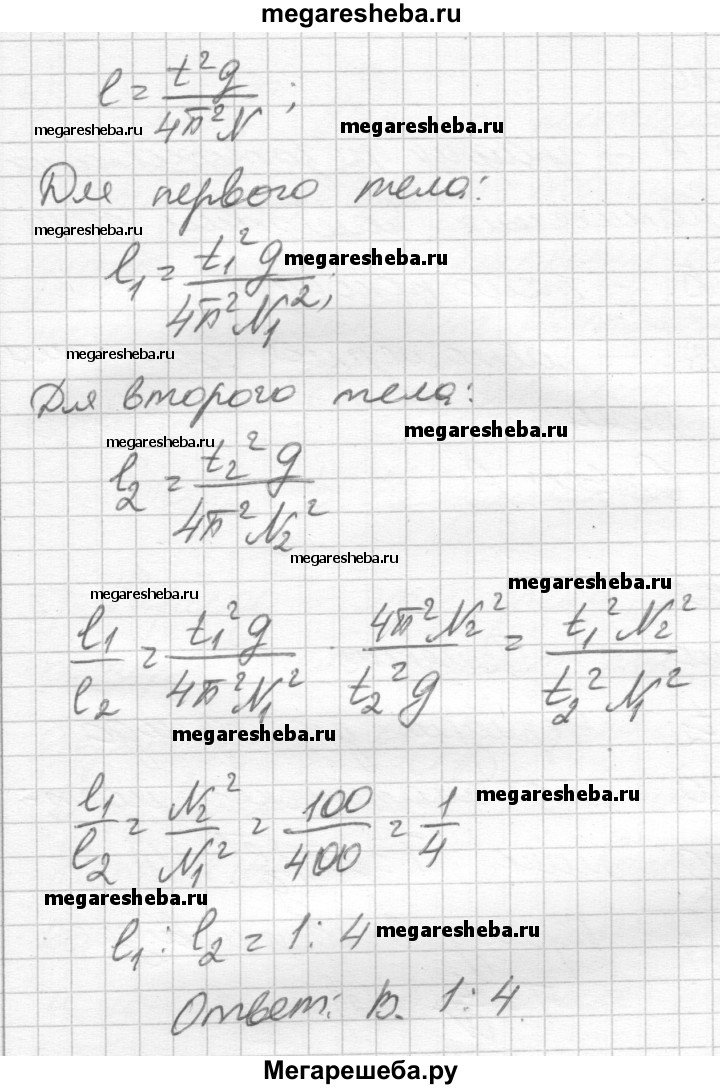 megaresheba.ru
l = t²g / 4π²N ;
megaresheba.ru megaresheba.ru
Для первого тела:
megaresheba.ru
l₁ = t₁²g / 4π²N₁² ; megaresheba.ru
megaresheba.ru
Для второго тела:
megaresheba.ru megaresheba.ru
l₂ = t₂²g / 4π²N₂²
megaresheba.ru
megaresheba.ru megaresheba.ru
l₁ / l₂ = t₁²g / 4π²N₁² · 4π²N₂² / t₂²g = t₁²N₂² / t₂²N₁²
megaresheba.ru
l₁ / l₂ = N₂² / N₁² = 100 / 400 = 1 / 4 megaresheba.ru
megaresheba.ru
l₁ : l₂ = 1 : 4 megaresheba.ru
Ответ: в. 1 : 4.
Мегарешеба.ру